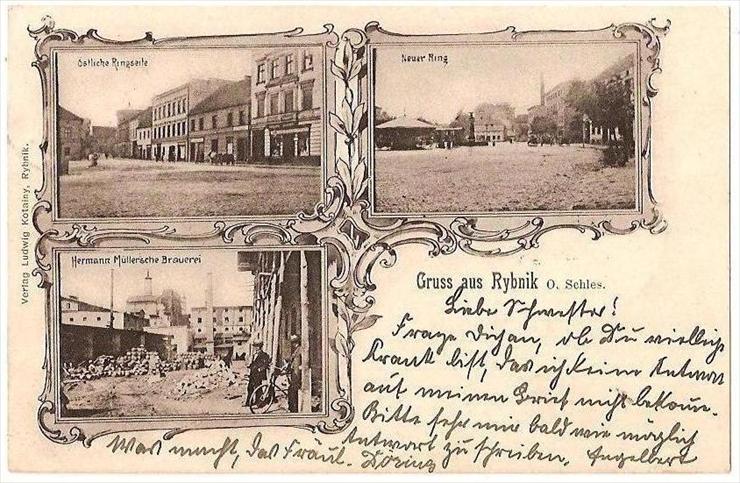 Östliche Ringseite
Neuer Ring
Verlag Ludwig Kotainy, Rybnik.
Hermann Müllersche Brauerei
Gruss aus Rybnik O. Schles.
Liebe Schwester!
Frage Dich an, ob Du vielleicht
krank bist, das ich keine Antwort
auf meinen Brief nicht bekomme.
Bitte sehr mir bald wie möglich
Antwort zu schreiben. Engelbert
Was macht, das Fräul. Döring